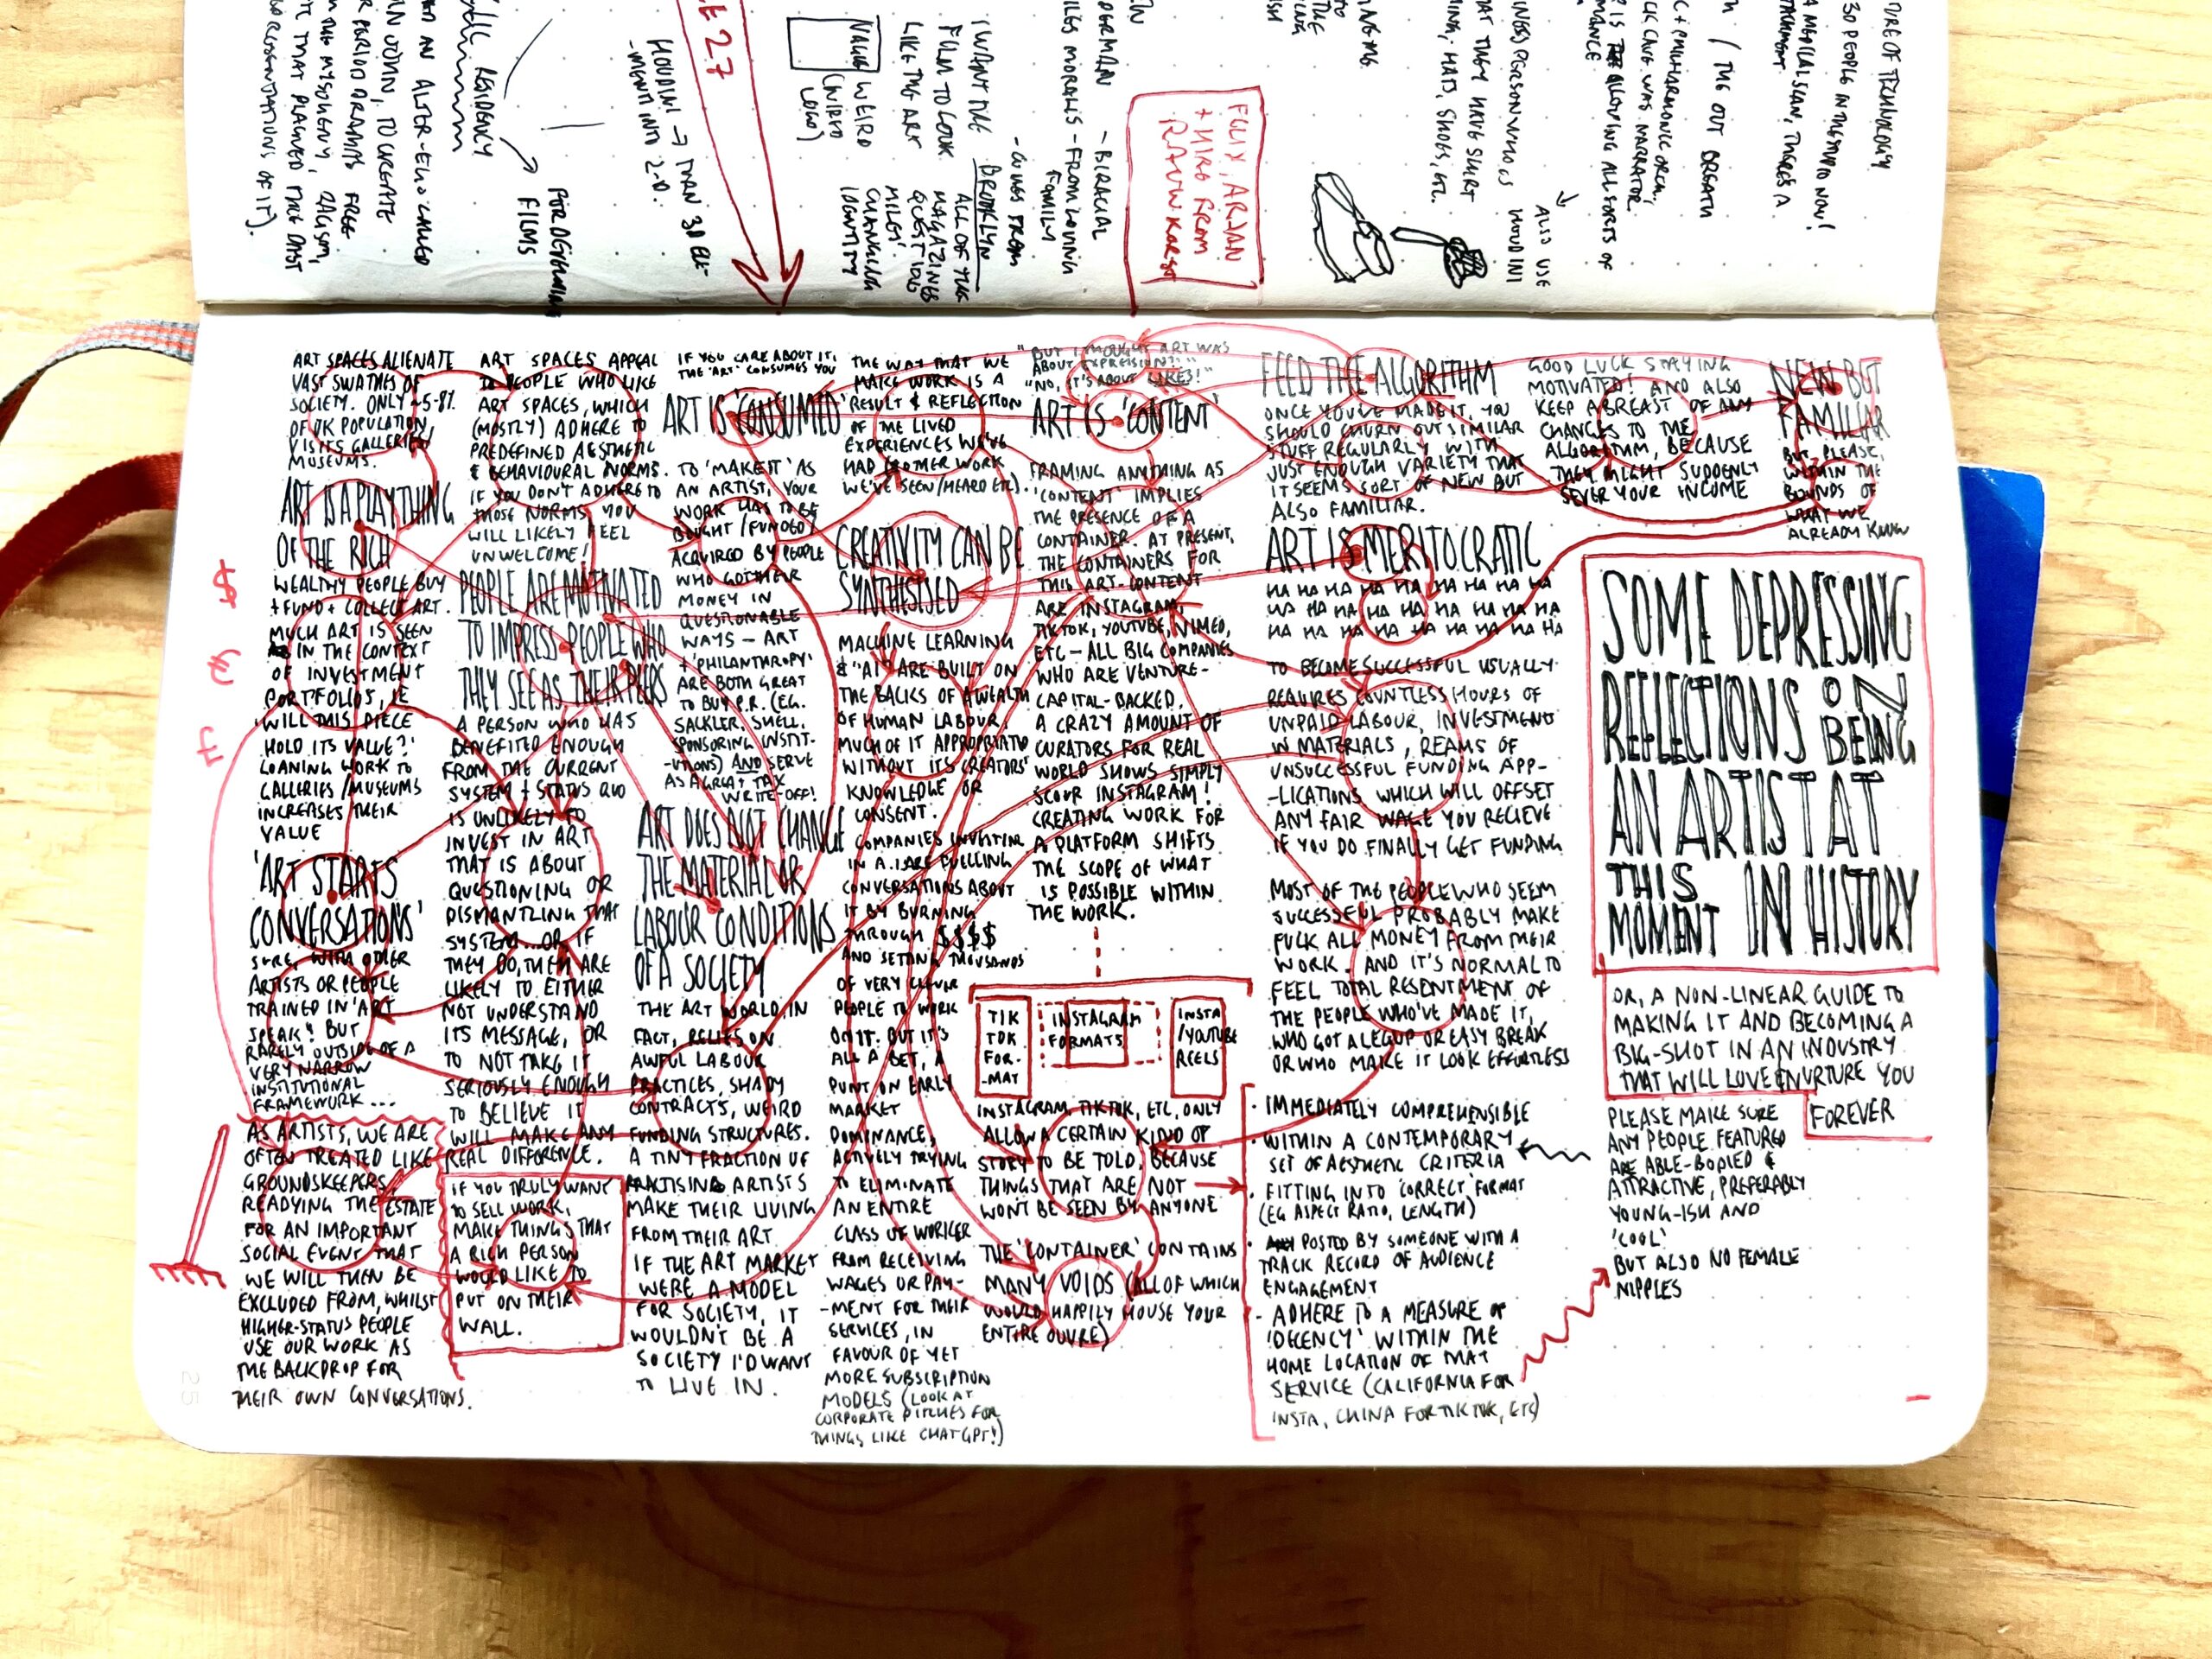 ART SPACES ALIENATE
VAST SWATHES OF
SOCIETY. ONLY ~5-8%
OF UK POPULATION
VISITS GALLERIES/
MUSEUMS.
ART IS A PLAYTHING
OF THE RICH
WEALTHY PEOPLE BUY
+ FUND + COLLECT ART.
MUCH ART IS SEEN
IN THE CONTEXT
OF INVESTMENT
PORTFOLIOS, IE
'WILL THIS PIECE
HOLD ITS VALUE?'
LOANING WORK TO
GALLERIES/MUSEUMS
INCREASES THEIR
VALUE
'ART STARTS
CONVERSATIONS'
SURE, WITH OTHER
ARTISTS OR PEOPLE
TRAINED IN 'ART
SPEAK'! BUT
RARELY OUTSIDE OF A
VERY NARROW
INSTITUTIONAL
FRAMEWORK...
AS ARTISTS, WE ARE
OFTEN TREATED LIKE
GROUNDSKEEPERS,
READYING THE ESTATE
FOR AN IMPORTANT
SOCIAL EVENT THAT
WE WILL THEN BE
EXCLUDED FROM, WHILST
HIGHER-STATUS PEOPLE
USE OUR WORK AS
THE BACKDROP FOR
THEIR OWN CONVERSATIONS.
ART SPACES APPEAL
TO PEOPLE WHO LIKE
ART SPACES, WHICH
(MOSTLY) ADHERE TO
PREDEFINED AESTHETIC
& BEHAVIOURAL NORMS.
IF YOU DON'T ADHERE TO
THOSE NORMS YOU
WILL LIKELY FEEL
UNWELCOME!
PEOPLE ARE MOTIVATED
TO IMPRESS PEOPLE WHO
THEY SEE AS THEIR PEERS
A PERSON WHO HAS
BENEFITED ENOUGH
FROM THE CURRENT
SYSTEM + STATUS QUO
IS UNLIKELY TO
INVEST IN ART
THAT IS ABOUT
QUESTIONING OR
DISMANTLING THAT
SYSTEM... OR IF
THEY DO, THEY ARE
LIKELY TO EITHER
NOT UNDERSTAND
ITS MESSAGE, OR
TO NOT TAKE IT
SERIOUSLY ENOUGH
TO BELIEVE IT
WILL MAKE ANY
REAL DIFFERENCE.
IF YOU TRULY WANT
TO SELL WORK,
MAKE THINGS THAT
A RICH PERSON
WOULD LIKE TO
PUT ON THEIR
WALL.
IF YOU CARE ABOUT IT,
THE 'ART' CONSUMES YOU
ART IS 'CONSUMED'
TO 'MAKE IT' AS
AN ARTIST, YOUR
WORK HAS TO BE
BOUGHT/FUNDED/
ACQUIRED BY PEOPLE
WHO GOT THEIR
MONEY IN
QUESTIONABLE
WAYS – ART
+ 'PHILANTHROPY'
ARE BOTH GREAT
TO BUY P.R. (EG.
SACKLER, SHELL,
SPONSORING INSTIT-
-UTIONS) AND SERVE
AS A GREAT TAX
WRITE-OFF!
ART DOES NOT CHANGE
THE MATERIAL OR
LABOUR CONDITIONS
OF A SOCIETY
THE ART WORLD, IN
FACT, RELIES ON
AWFUL LABOUR
PRACTICES, SHADY
CONTRACTS, WEIRD
FUNDING STRUCTURES.
A TINY FRACTION OF
PRACTISING ARTISTS
MAKE THEIR LIVING
FROM THEIR ART.
IF THE ART MARKET
WERE A MODEL
FOR SOCIETY, IT
WOULDN'T BE A
SOCIETY I'D WANT
TO LIVE IN.
THE WAY THAT WE
MAKE WORK IS A
RESULT & REFLECTION
OF THE LIVED
EXPERIENCES WE'VE
HAD & OTHER WORK
WE'VE SEEN (HEARD ETC).
CREATIVITY CAN BE
SYNTHESISED
MACHINE LEARNING
& "AI" ARE BUILT ON
THE BACKS OF A WEALTH
OF HUMAN LABOUR,
MUCH OF IT APPROPRIATED
WITHOUT ITS CREATORS'
KNOWLEDGE OR
CONSENT.
COMPANIES INVESTING
IN A.I. ARE FUELLING
CONVERSATIONS ABOUT
IT BY BURNING
THROUGH $$$$
AND SETTING THOUSANDS
OF VERY CLEVER
PEOPLE TO WORK
ON IT. BUT IT'S
ALL A BET, A
PUNT ON EARLY
MARKET
DOMINANCE,
ACTIVELY TRYING
TO ELIMINATE
AN ENTIRE
CLASS OF WORKER
FROM RECEIVING
WAGES OR PAY-
-MENT FOR THEIR
SERVICES, IN
FAVOUR OF YET
MORE SUBSCRIPTION
MODELS (LOOK AT
CORPORATE PITCHES FOR
THINGS LIKE CHATGPT!)
"BUT I THOUGHT ART WAS
ABOUT EXPRESSION?!"
"NO, IT'S ABOUT LIKES!"
ART IS 'CONTENT'
FRAMING ANYTHING AS
'CONTENT' IMPLIES
THE PRESENCE OF A
CONTAINER. AT PRESENT,
THE CONTAINERS FOR
THIS ART-CONTENT
ARE INSTAGRAM,
TIKTOK, YOUTUBE, VIMEO,
ETC – ALL BIG COMPANIES
WHO ARE VENTURE-
CAPITAL-BACKED.
A CRAZY AMOUNT OF
CURATORS FOR REAL
WORLD SHOWS SIMPLY
SCOUR INSTAGRAM!
CREATING WORK FOR
A PLATFORM SHIFTS
THE SCOPE OF WHAT
IS POSSIBLE WITHIN
THE WORK.
TIK
TOK
FOR-
-MAT
INSTAGRAM
FORMATS
INSTA
/YOUTUBE
REELS
INSTAGRAM, TIKTOK, ETC, ONLY
ALLOW A CERTAIN KIND OF
STORY TO BE TOLD, BECAUSE
THINGS THAT ARE NOT
WON'T BE SEEN BY ANYONE
THE 'CONTAINER' CONTAINS
MANY VOIDS (ALL OF WHICH
WOULD HAPPILY HOUSE YOUR
ENTIRE OUVRE)
FEED THE ALGORITHM
ONCE YOU'VE MADE IT, YOU
SHOULD CHURN OUT SIMILAR
STUFF REGULARLY WITH
JUST ENOUGH VARIETY THAT
IT SEEMS SORT OF NEW BUT
ALSO FAMILIAR.
ART IS MERITOCRATIC
HA HA HA HA HA HA HA HA HA
HA HA HA HA HA HA HA HA HA
HA HA HA HA HA HA HA HA HA
TO BECOME SUCCESSFUL USUALLY
REQUIRES COUNTLESS HOURS OF
UNPAID LABOUR, INVESTMENT
IN MATERIALS, REAMS OF
UNSUCCESSFUL FUNDING APP-
-LICATIONS WHICH WILL OFFSET
ANY FAIR WAGE YOU RECIEVE
IF YOU DO FINALLY GET FUNDING
MOST OF THE PEOPLE WHO SEEM
SUCCESSFUL PROBABLY MAKE
FUCK ALL MONEY FROM THEIR
WORK. AND IT'S NORMAL TO
FEEL TOTAL RESENTMENT OF
THE PEOPLE WHO'VE MADE IT,
WHO GOT A LEGUP OR EASY BREAK
OR WHO MAKE IT LOOK EFFORTLESS
• IMMEDIATELY COMPREHENSIBLE
• WITHIN A CONTEMPORARY
SET OF AESTHETIC CRITERIA
• FITTING INTO 'CORRECT' FORMAT
(EG ASPECT RATIO, LENGTH)
• POSTED BY SOMEONE WITH A
TRACK RECORD OF AUDIENCE
ENGAGEMENT
- ADHERE TO A MEASURE OF
'DECENCY' WITHIN THE
HOME LOCATION OF THAT
SERVICE (CALIFORNIA FOR
INSTA, CHINA FOR TIKTOK, ETC)
GOOD LUCK STAYING
MOTIVATED! AND ALSO
KEEP ABREAST OF ANY
CHANGES TO THE
ALGORITHM, BECAUSE
THEY MIGHT SUDDENLY
SEVER YOUR INCOME
NEW BUT
FAMILIAR
BUT, PLEASE,
WITHIN THE
BOUNDS OF
WHAT WE
ALREADY KNOW
SOME DEPRESSING
REFLECTIONS ON
BEING
AN ARTIST AT
THIS
MOMENT IN HISTORY
OR, A NON-LINEAR GUIDE TO
MAKING IT AND BECOMING A
BIG-SHOT IN AN INDUSTRY
THAT WILL LOVE & NURTURE YOU
FOREVER
PLEASE MAKE SURE
ANY PEOPLE FEATURED
ARE ABLE-BODIED &
ATTRACTIVE, PREFERABLY
YOUNG-ISH AND
'COOL'
BUT ALSO NO FEMALE
NIPPLES
$
€
£
25
27
HOUDINI → TURN 3D ELE-
-MENTS INTO 2-D.
I WANT THE
FILM TO LOOK
LIKE THE ART
WEIRD
BROOKLYN
ALL OF THE
MAGAZINES
QUESTION
MILES'
CHANGING
IDENTITY
- BIRACIAL
- FROM LOVING
FAMILY
- COMES FROM
MILES MORALES
FELIX, ARJAN
+ HIRE FROM
ALSO USE
HOUDINI
RESIDENCY
FILMS